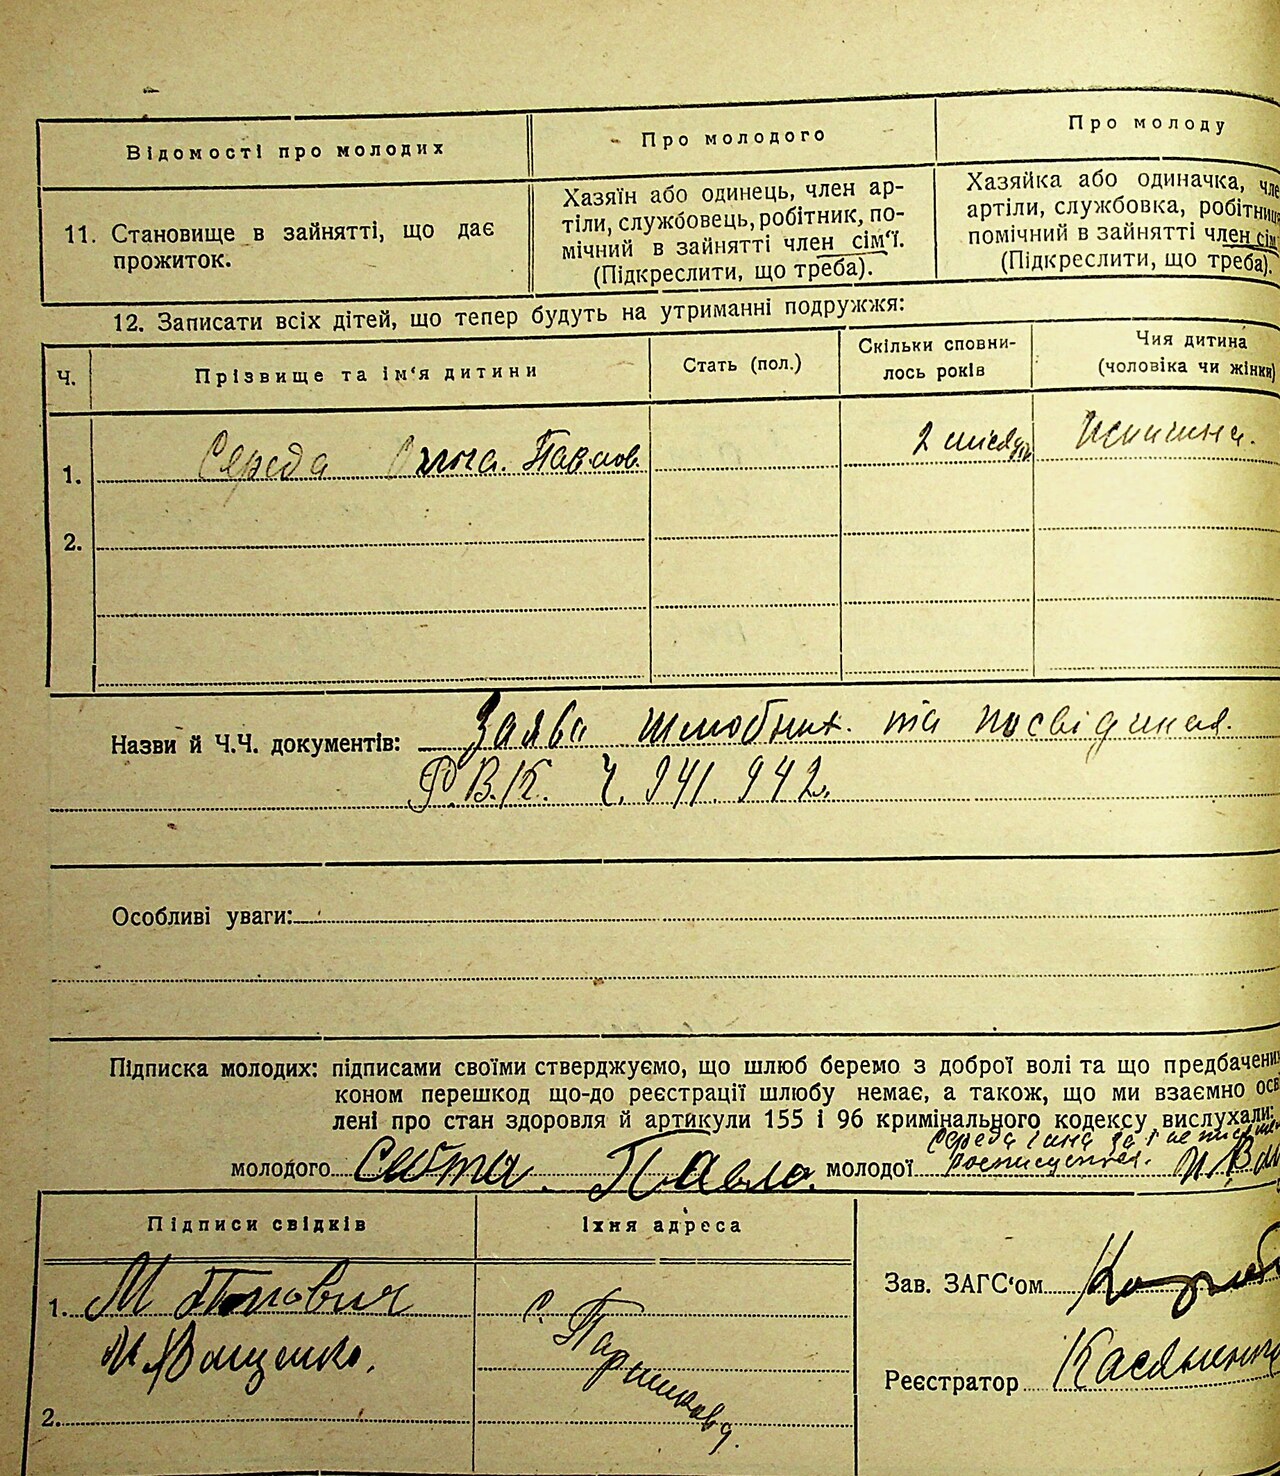 Відомості про молодих
Про молодого
Про молоду
11. Становище в зайнятті, що дає
прожиток.
Хазяїн або одинець, член ар-
тіли, службовець, робітник, по-
мічний в зайнятті член сім‘ї.
(Підкреслити, що треба).
Хазяйка або одиначка, чле
артіли, службовка, робітниця
помічний в зайнятті член сім
(Підкреслити, що треба).
12. Записати всіх дітей, що тепер будуть на утриманні подружжя:
Ч.
Прізвище та ім'я дитини
Стать (пол.)
Скільки сповни-
лось років
Чия дитина
(чоловіка чи жінки)
1. Середа Павлов. 2 місяці
2.
Назви й Ч.Ч. документів: Заява шлюбних та посвідчення.
Р.В.К. Ч. 941. 942.
Особливі уваги:
Підписка молодих: підписами своїми стверджуємо, що шлюб беремо з доброї волі та що предбачени
коном перешкод що-до реєстрації шлюбу немає, а також, що ми взаємно осв
лені про стан здоровля й артикули 155 і 96 кримінального кодексу вислухали:
Середа Гана за
молодого Павло. молодої
Підписи свідків
Їхня адреса
1. М
И Ващенко.
2.
с.
Зав. ЗАГС‘ом
Реєстратор Касяненко